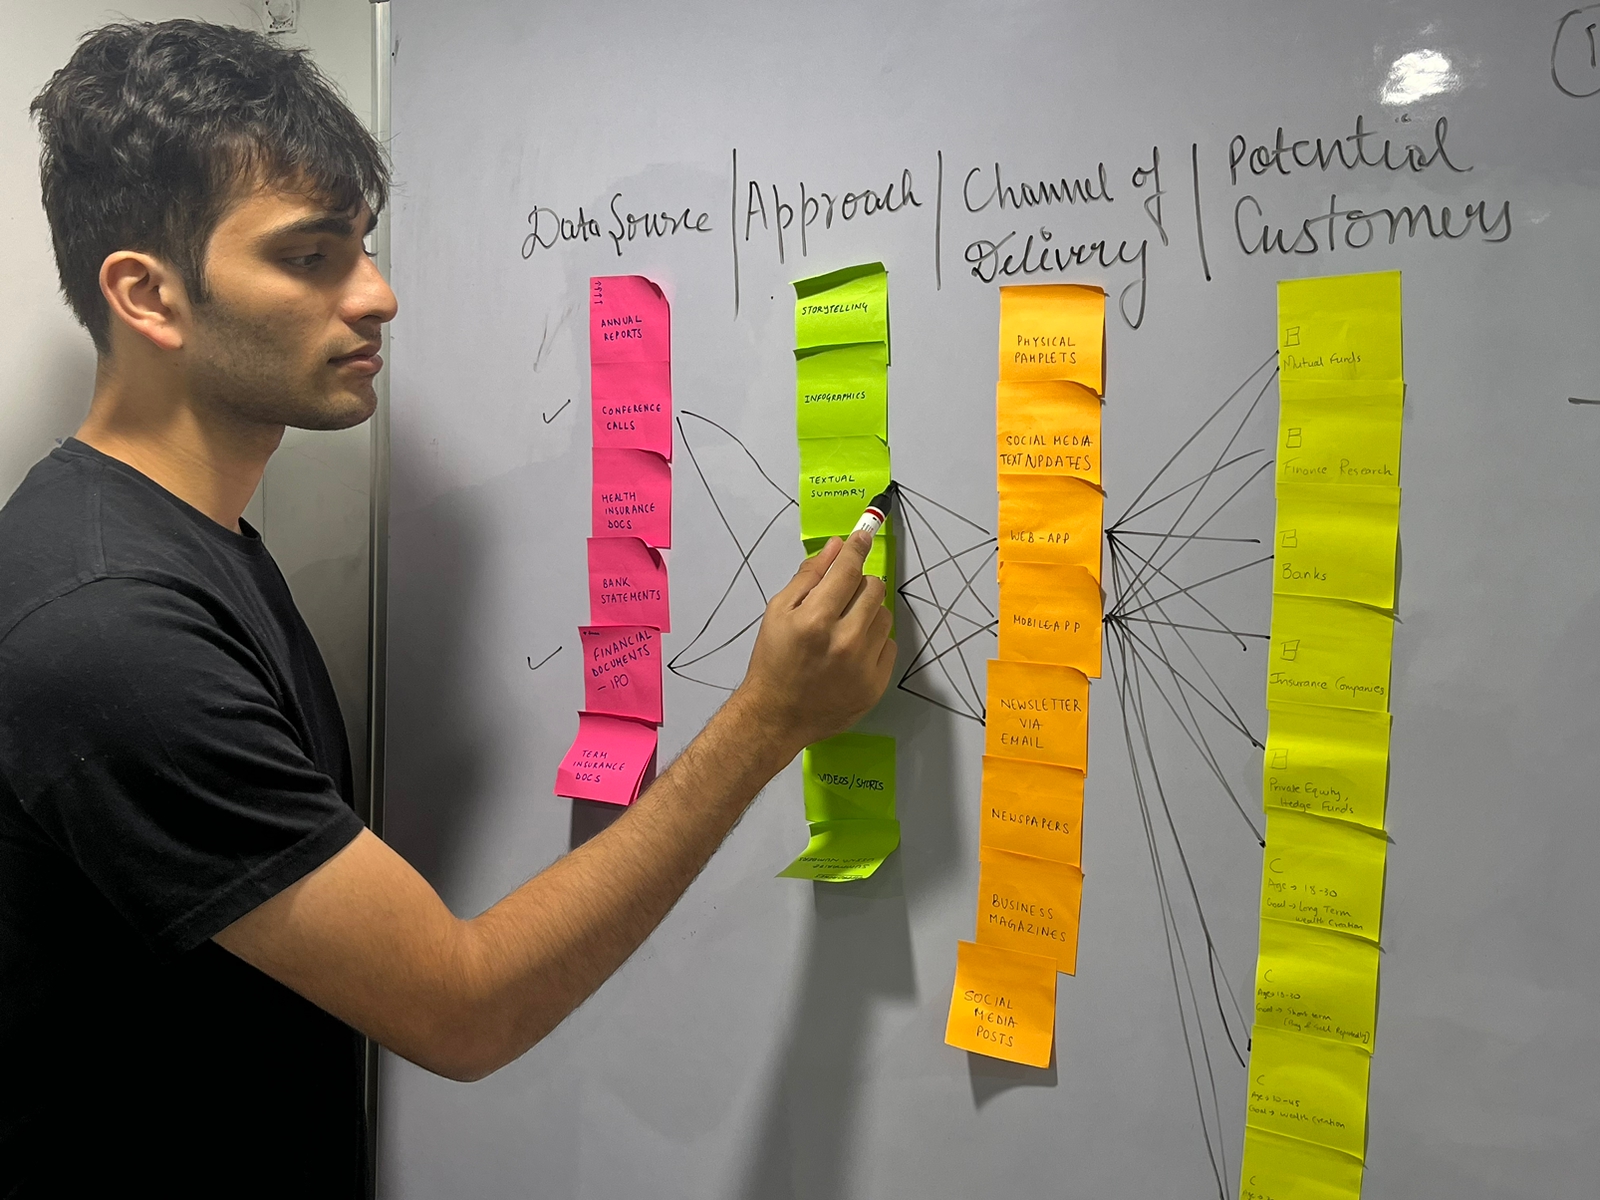 Data Source
Approach
Channel of
Delivery
Potential
Customers
ANNUAL
REPORTS
CONFERENCE
CALLS
HEALTH
INSURANCE
DOCS
BANK
STATEMENTS
FINANCIAL
DOCUMENTS
- IPO
TERM
INSURANCE
DOCS
STORYTELLING
INFOGRAPHICS
TEXTUAL
SUMMARY
VIDEOS/SHORTS
PHYSICAL
PAMPLETS
SOCIAL MEDIA
TEXT UPDATES
WEB-APP
MOBILE APP
NEWSLETTER
VIA
EMAIL
NEWSPAPERS
BUSINESS
MAGAZINES
SOCIAL
MEDIA
POSTS
B
Mutual Funds
B
Finance Research
B
Banks
B
Insurance Companies
B
Private Equity,
Hedge Funds
C
Age → 18-30
Goal → Long Term
Wealth Creation
C
Goal → Short term
(Buy & Sell Repeatedly)
C
Goal → Wealth Creation
C